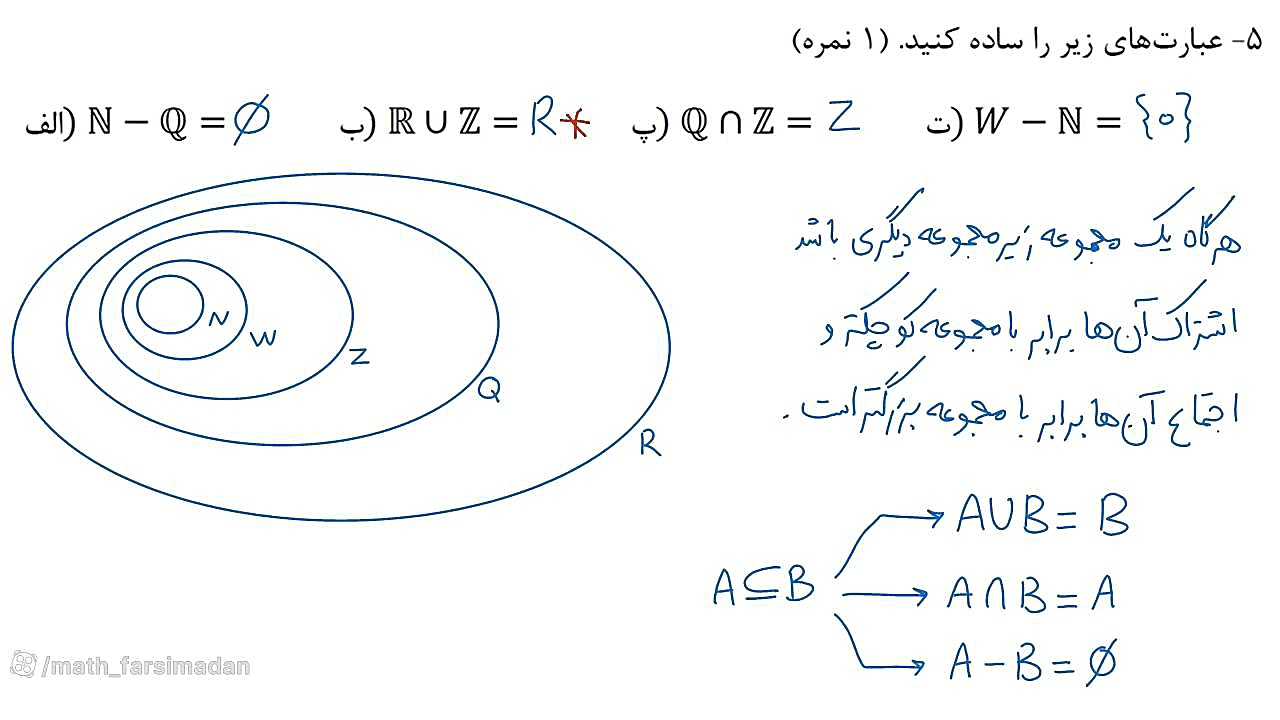 ۵- عبارت‌های زیر را ساده کنید. (۱ نمره)
الف) ℕ − ℚ = ∅ ب) ℝ ∪ ℤ = R* پ) ℚ ∩ ℤ = Z ت) W − ℕ = {0}
هرگاه یک مجموعه زیرمجموعه دیگری باشد
اشتراک آن‌ها برابر با مجموعه کوچکتر و
اجتماع آن‌ها برابر با مجموعه بزرگتر است.
N
W
Z
Q
R
A∪B = B
A⊆B
A∩B = A
A − B = ∅
/math_farsimadan